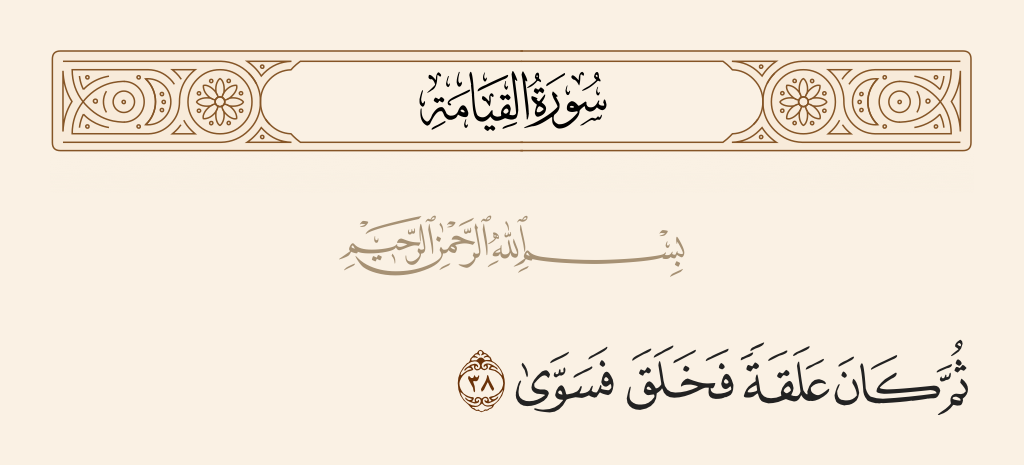 سُورَةُ القِيَامَةِ
بِسْمِ ٱللَّهِ ٱلرَّحْمَٰنِ ٱلرَّحِيمِ
ثُمَّ كَانَ عَلَقَةً فَخَلَقَ فَسَوَّىٰ ٣٨